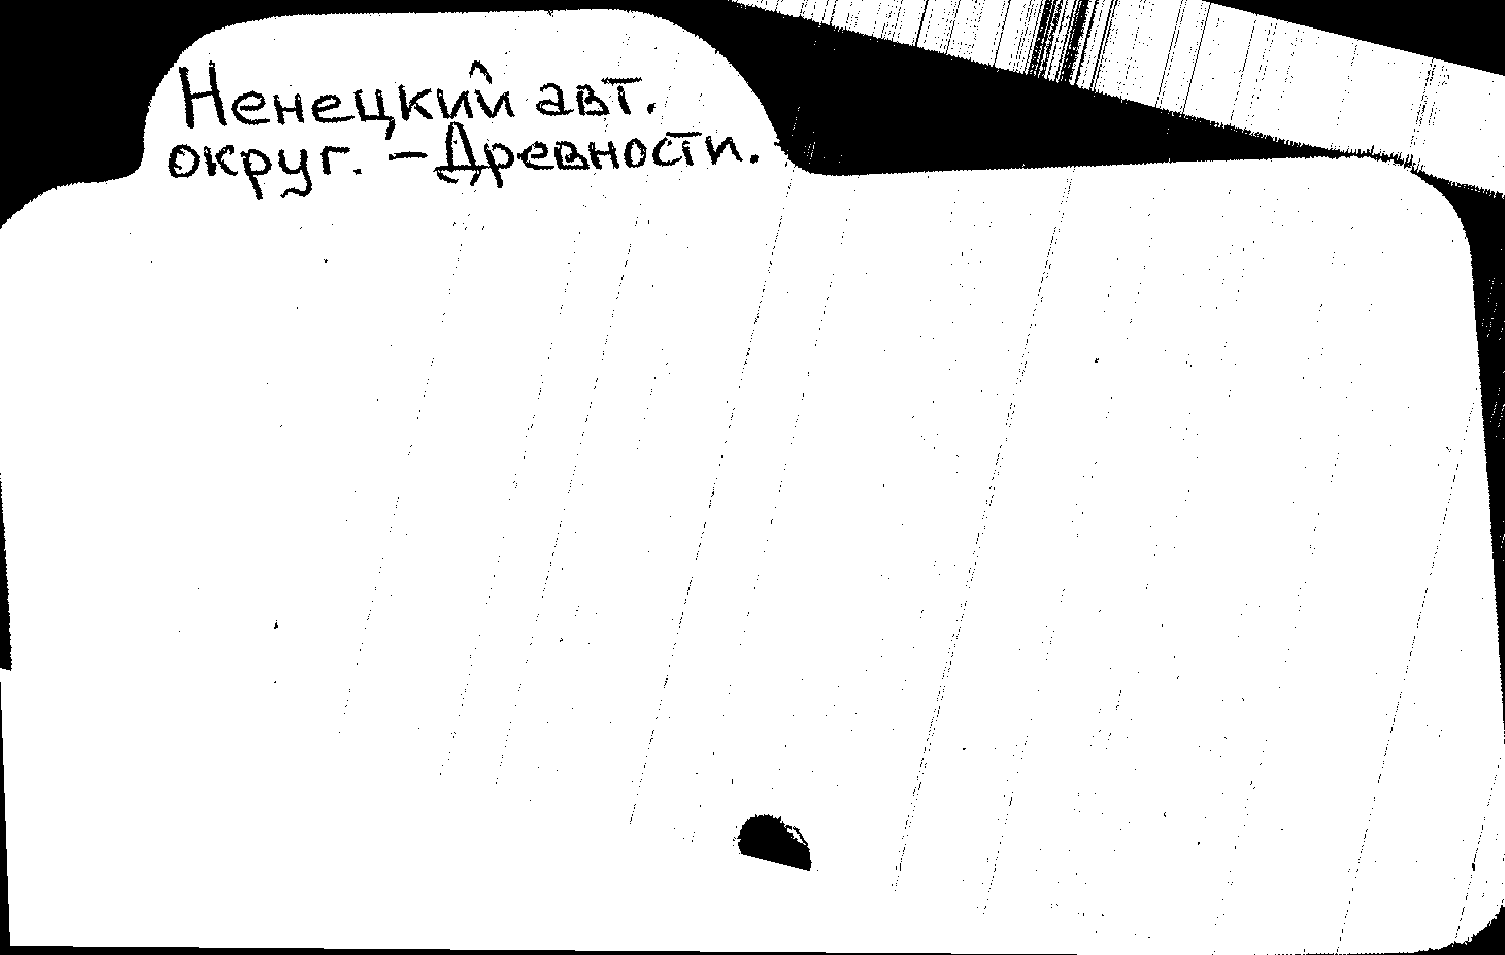 Ненецкий авт.
округ. – Древности.